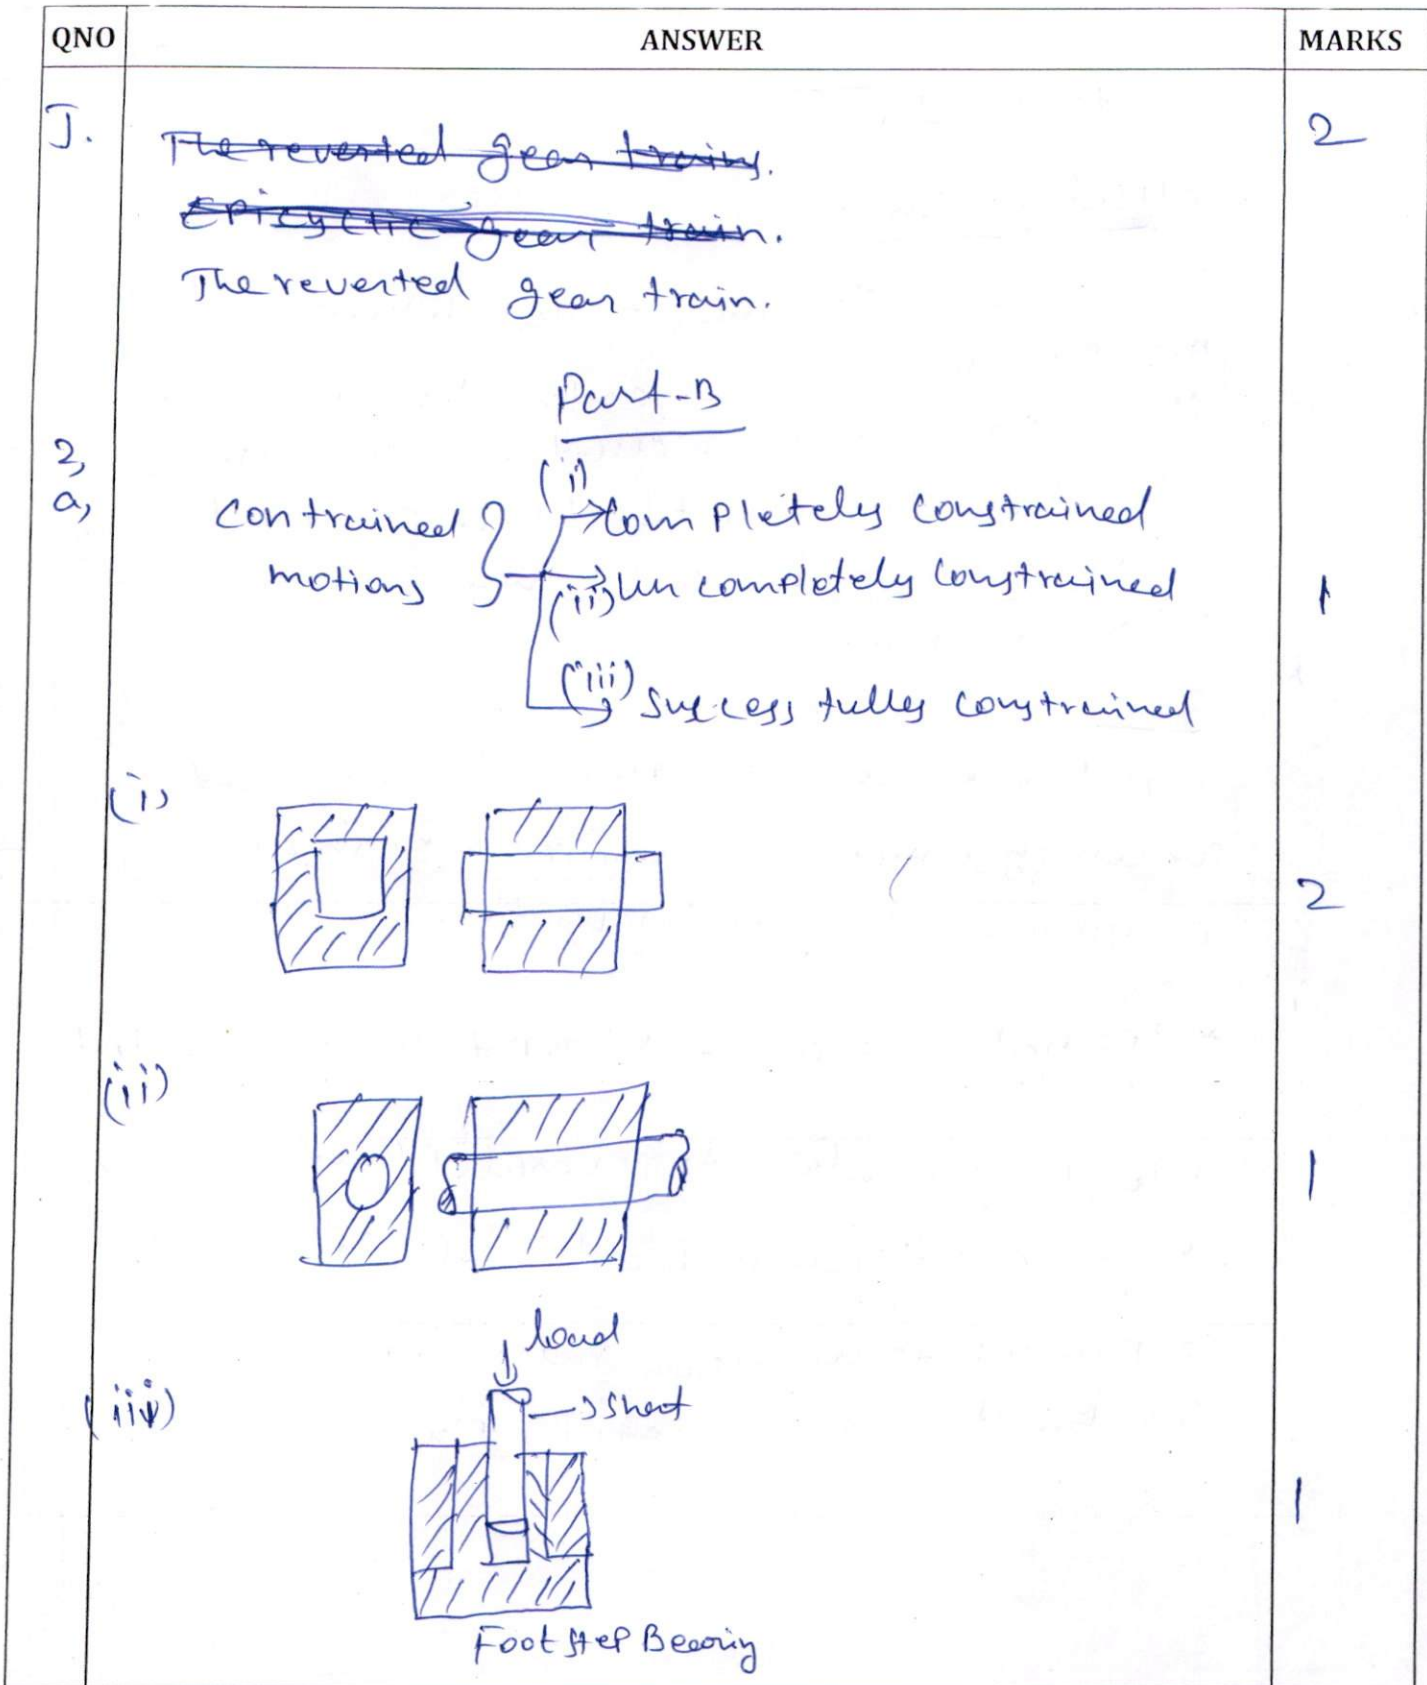 QNO ANSWER MARKS
J. 2
The reverted gear trains.
Epicyclic gear train.
The reverted gear train.
Part-B
2,
a,
(i)
Contrained → Completely constrained
motions → Un completely constrained 1
(ii)
(iii)
→ Successfully constrained
(i)
2
(ii)
1
load
(iii) → Shaft
1
Foot step Bearing